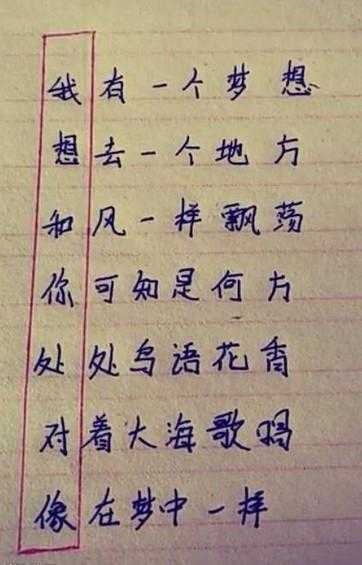 我有一个梦想
想去一个地方
和风一样飘荡
你可知是何方
处处鸟语花香
对着大海歌唱
像在梦中一样